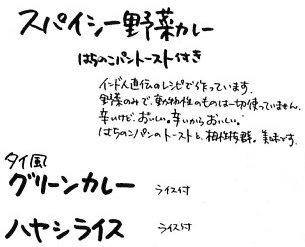 スパイシー野菜カレー
はちのこパントースト付き
インド人直伝のレシピで作っています。
野菜のみで、動物性のものは一切使っていません。
辛いけど、おいしい。辛いからおいしい。
はちのこパンのトーストと、相性抜群。美味です。
タイ風
グリーンカレー ライス付
ハヤシライス ライス付